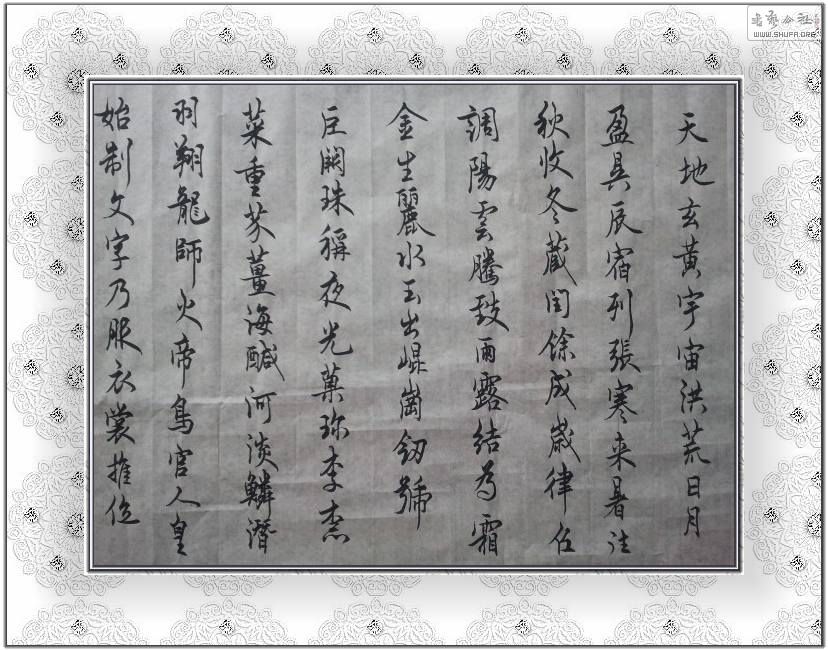 天地玄黃宇宙洪荒日月
盈昃辰宿列張寒来暑往
秋收冬蔵閏餘成嵗律召
調陽雲騰致雨露結為霜
金生麗水玉出崐崗劒號
巨闕珠稱夜光菓珍李柰
菜重芥薑海鹹河淡鱗潛
羽翔龍師火帝鳥官人皇
始制文字乃服衣裳推位
WWW.SHUFA.ORG